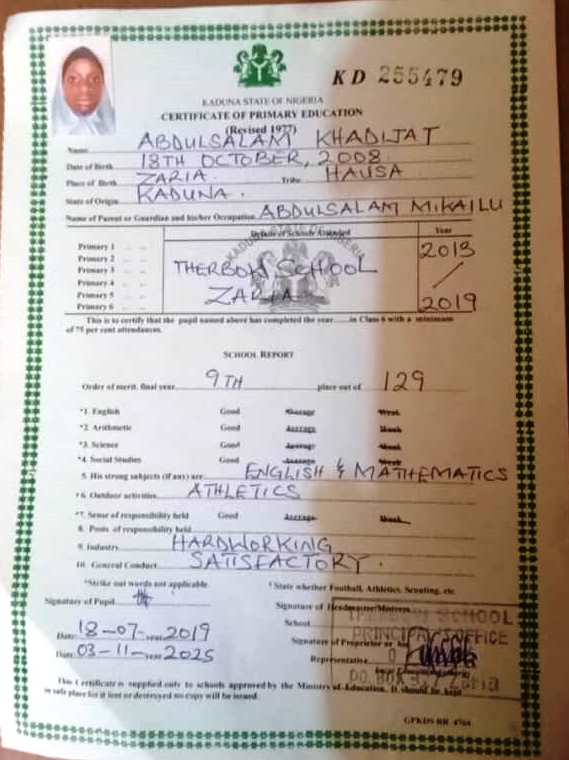 KD 255479
KADUNA STATE OF NIGERIA
CERTIFICATE OF PRIMARY EDUCATION
(Revised 1977)
Name ABDULSALAM KHADIJAT
Date of Birth 18TH OCTOBER, 2008
Place of Birth ZARIA. Tribe HAUSA
State of Origin KADUNA.
Name of Parent or Guardian and his/her Occupation ABDULSALAM MIKAILU
Details of Schools Attended Year
Primary 1 2013
Primary 2
Primary 3 THERBOW SCHOOL
Primary 4
Primary 5 ZARIA
Primary 6 2019
KADUNA STATE OF NIGERIA
This is to certify that the pupil named above has completed the year in Class 6 with a minimum
of 75 per cent attendances.
SCHOOL REPORT
Order of merit, final year 9TH place out of 129
*1. English Good Average Weak
*2. Arithmetic Good Average Weak
*3. Science Good Average Weak
*4. Social Studies Good Average Weak
5. His strong subjects (if any) are ENGLISH & MATHEMATICS
†6. Outdoor activities ATHLETICS
*7. Sense of responsibility held Good Average Weak
8. Posts of responsibility held
9. Industry HARDWORKING
10. General Conduct SATISFACTORY.
*Strike out words not applicable. † State whether Football, Athletics, Scouting, etc.
Signature of Pupil
Signature of Headmaster/Mistress
School
Date: 18-07-year 2019
Signature of Proprietor or
Date: 03-11-year 2025
Representative
THERBOW SCHOOL
PRINCIPAL'S OFFICE
P.O. BOX Zaria
This Certificate is supplied only to schools approved by the Ministry of Education. It should be kept
in safe place for if lost or destroyed no copy will be issued.
GPKDS RR 4764